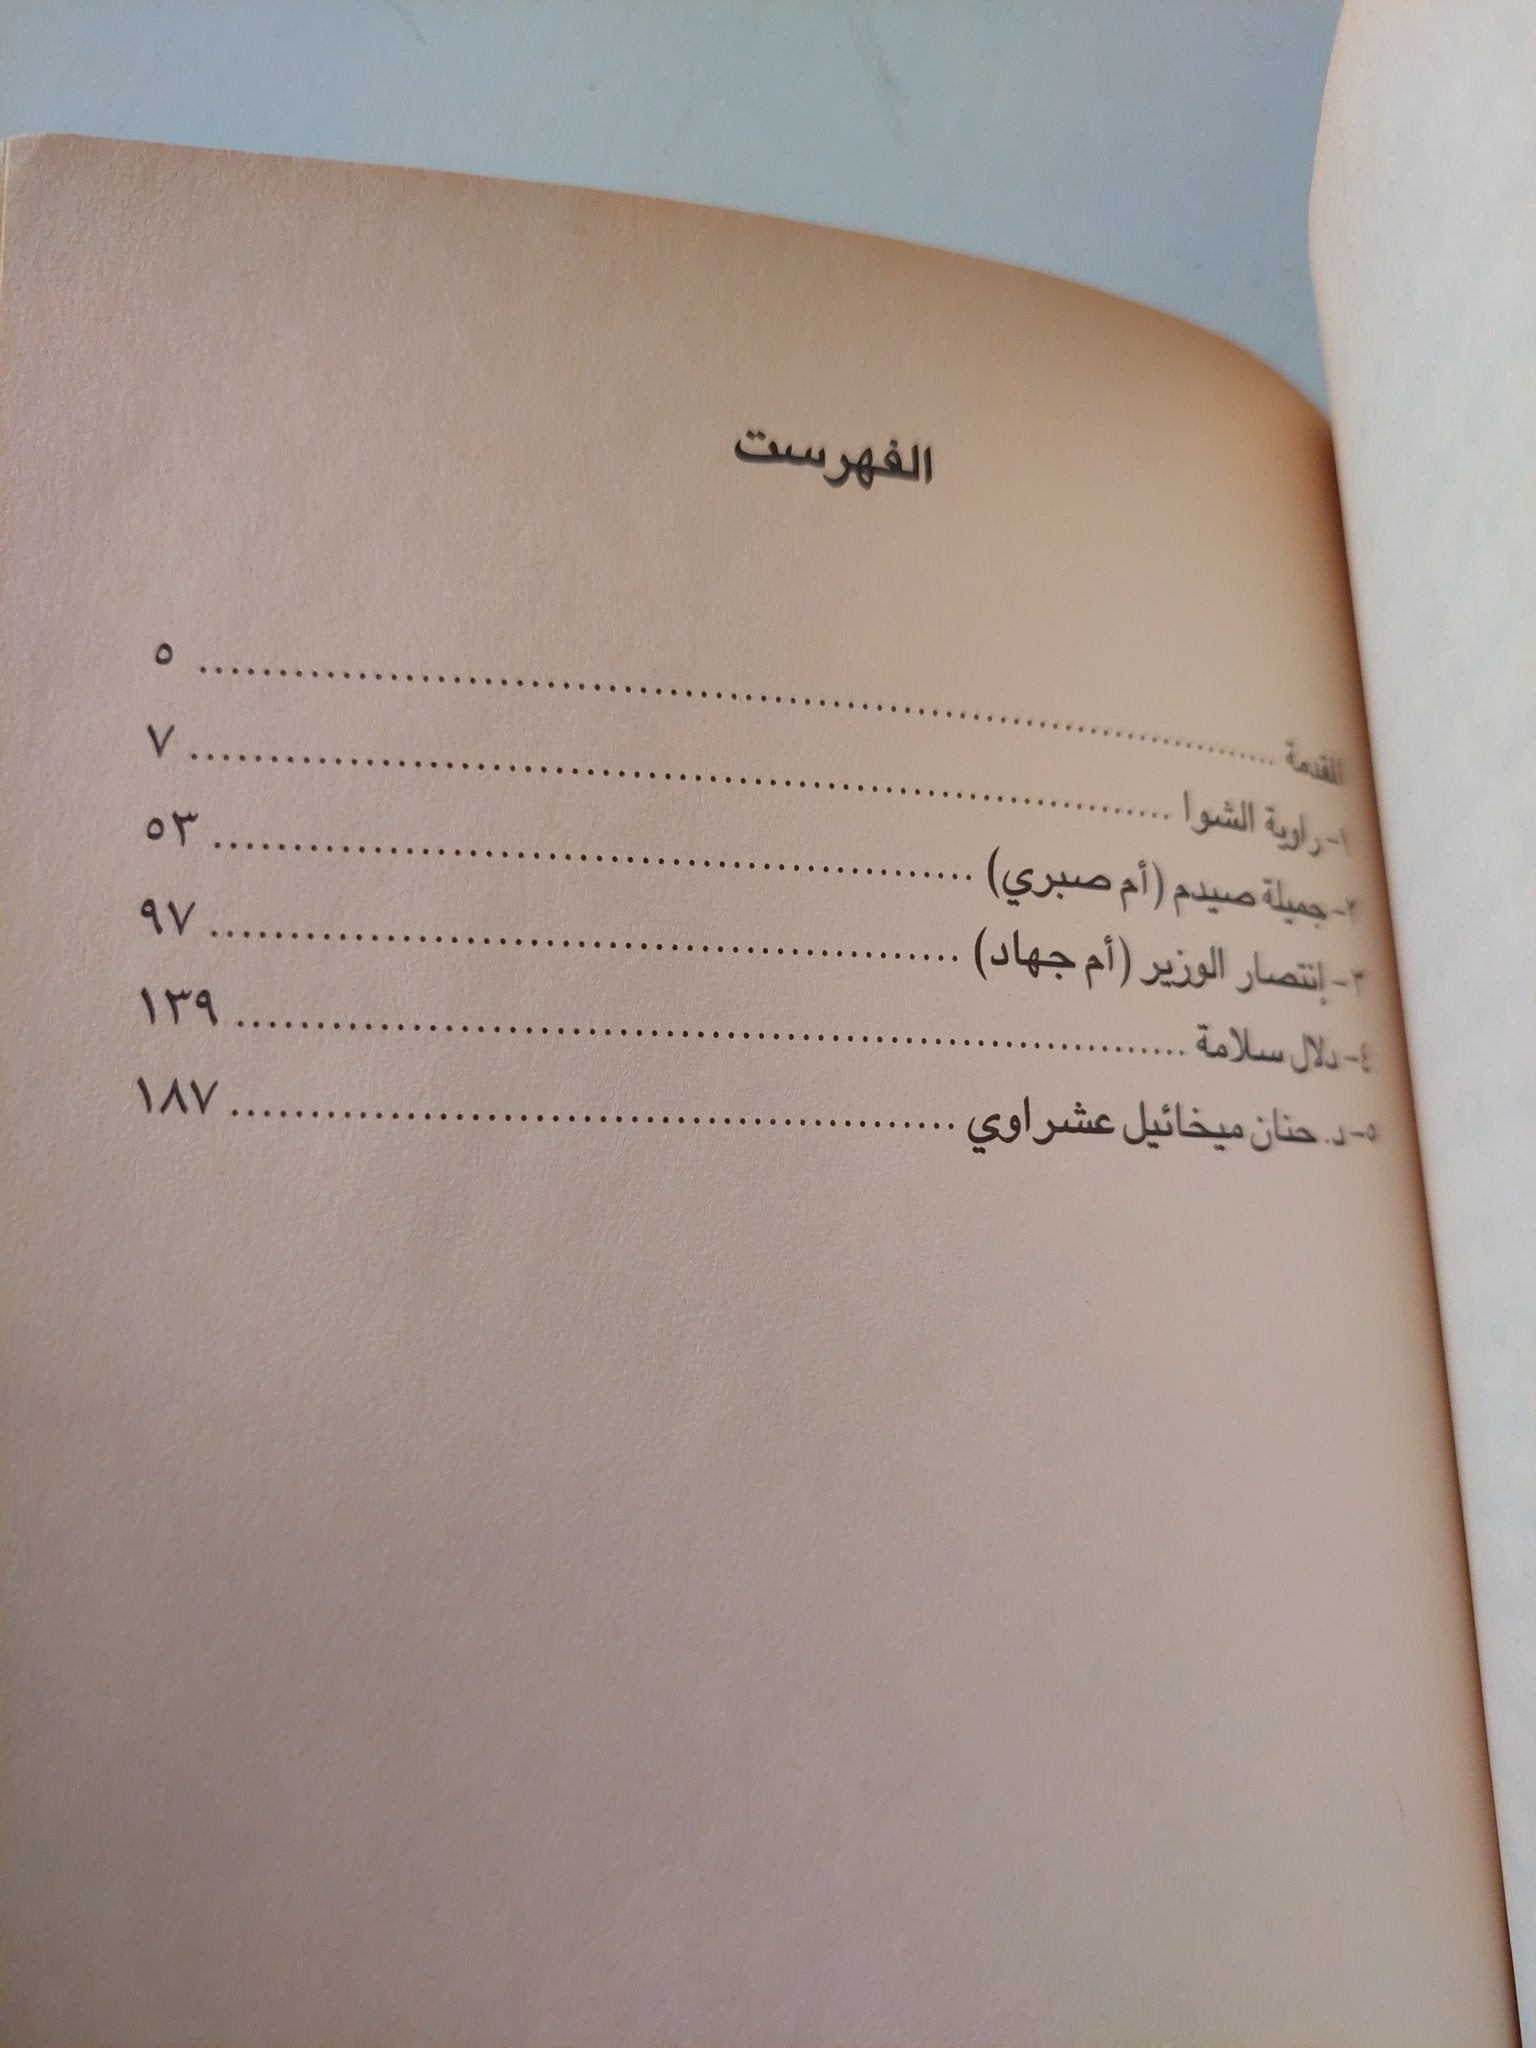 الفهرست
المقدمة ........................................ ٥
١- راوية الشوا ........................................ ٧
٢- جميلة صيدم (أم صبري) ........................................ ٥٣
٣- إنتصار الوزير (أم جهاد) ........................................ ٩٧
٤- دلال سلامة ........................................ ١٣٩
٥- د. حنان ميخائيل عشراوي ........................................ ١٨٧